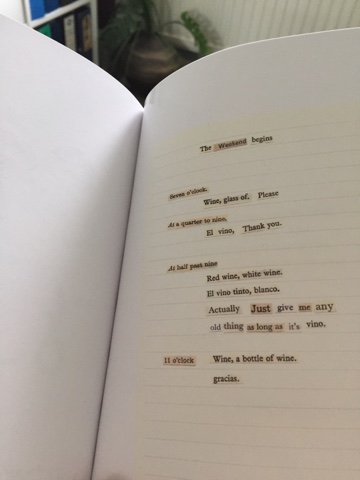 The Weekend begins
Seven o'clock.
Wine, glass of. Please
At a quarter to nine.
El vino, Thank you.
At half past nine
Red wine, white wine.
El vino tinto, blanco.
Actually Just give me any
old thing as long as it's vino.
11 o'clock Wine, a bottle of wine.
gracias.